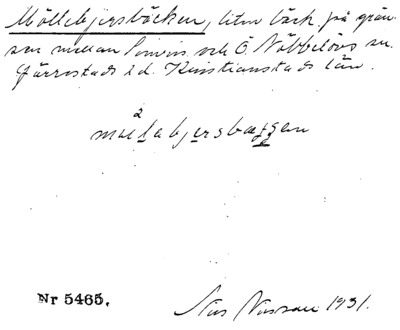 Möllebjersbäcken, liten bäck på grän-
sen mellan Simris och Ö. Nöbbelövs sn.
Järrestads hd. Kristianstads län.
2
møllabjersbæggen
Nr 5465.
1931.